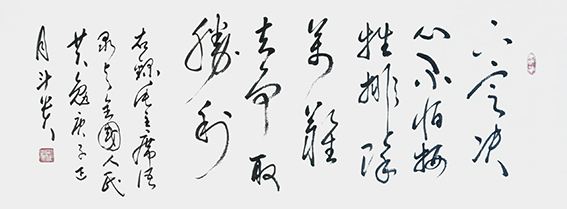 下定决
心不怕牺
牲排除
萬難
去争取
勝利
右録毛主席语
录与全國人民
共勉庚子正
月斗